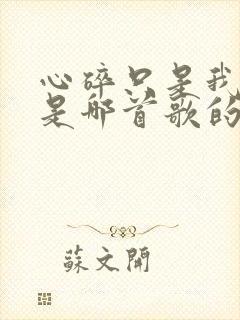 心碎只是我
是那首歌的
蘇文開